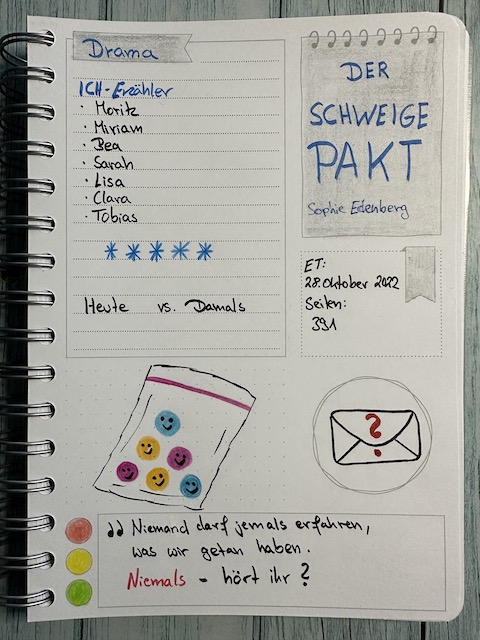 Drama
ICH-Erzähler
· Moritz
· Miriam
· Bea
· Sarah
· Lisa
· Clara
· Tobias
* * * * *
Heute vs. Damals
DER
SCHWEIGE
PAKT
Sophie Edenberg
ET:
28. Oktober 2022
Seiten:
391
?
„ Niemand darf jemals erfahren,
was wir getan haben.
Niemals – hört ihr?